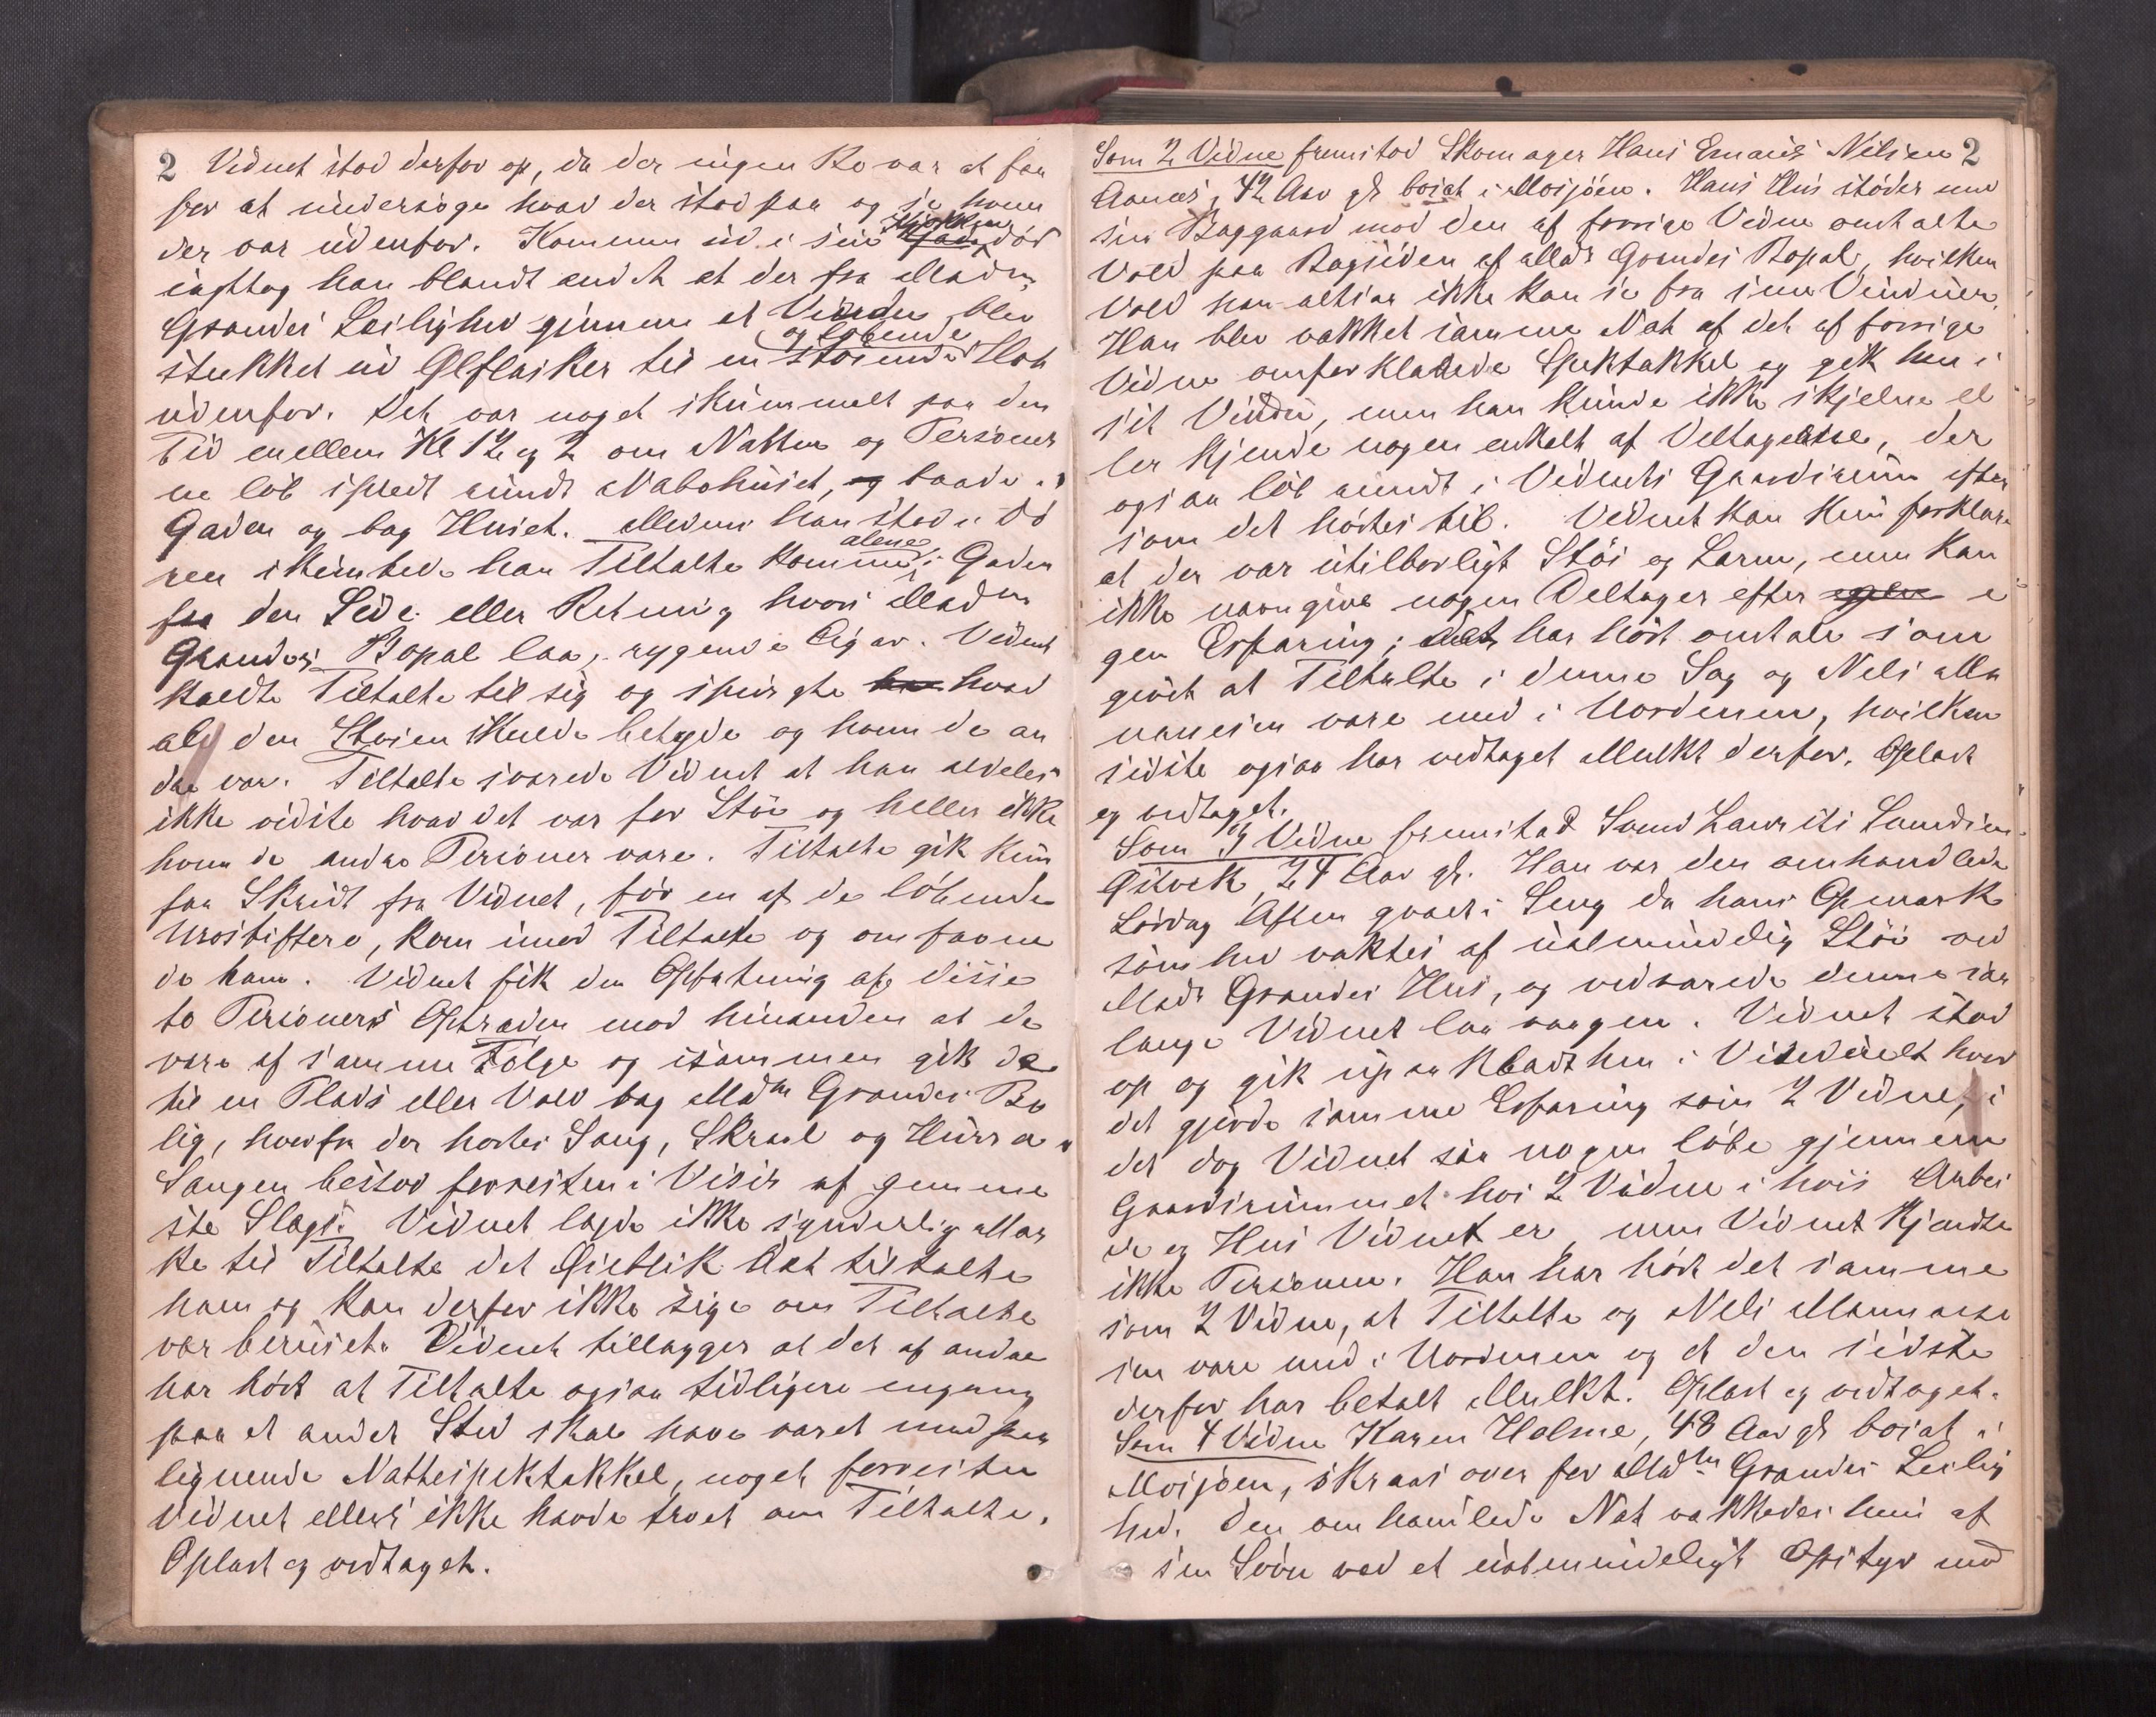 2 Vidnet stod derfor op, da der ingen Ro var at faa
for at undersøge hvad der stod paa og se hvem
der var udenfor. Kommen ud i sin Kjøkken dør
iagttog han blandt andet at der fra Madm
Grandes Leilighed gjennem et Vindu blev
stukket ud Ølflasker til en støiende og løbende Flok
udenfor. Det var noget skummelt paa den
Tid mellem Kl 12 og 2 om Natten og Personer
ne løb spredt rundt Nabohuset, og baade i
Gaden og bag Huset. Medens han stod i Dø
ren skimtede han Tiltalte komme alene i Gaden
fra den Side eller Retning hvori Madm
Grandes Bopæl laa, rygende Cigar. Vidnet
kaldte Tiltalte til sig og spurgte hvad
al den Støien skulde betyde og hvem de an
dre var. Tiltalte svarede Vidnet at han aldeles
ikke vidste hvad det var for Støi og heller ikke
hvem de andre Personer vare. Tiltalte gik kun
faa Skridt fra Vidnet, før en af de løbende
Urostiftere, kom imod Tiltalte og omfavne
de ham. Vidnet fik den Opfatning af disse
to Personers Optræden mod hinanden at de
vare af samme Følge og isammen gik de
til en Plads eller Vold bag Madm Grandes Bo
lig, hvorfra der hørtes Sang, Skraal og Hurra.
Sangen bestod forresten i Visir af gemme
ste Slags. Vidnet lagde ikke synderlig Mær
ke til Tiltalte det Øieblik det tiltalte
ham og kan derfor ikke sige om Tiltalte
var beruset. Vidnet tillægger at det af andre
har hørt at Tiltalte ogsaa tidligere engang
paa et andet Sted skal have været med paa
lignende Nattespektakkel, noget forresten
Vidnet ellers ikke havde troet om Tiltalte.
Oplæst og vedtaget.
Som 2 Vidne fremstod Skomager Hans Emaus Nilsen 2
Aanæs, 42 Aar gl bosat i Mosjøen. Hans Hus støder med
sin Baggaard mod den af forrige Vidne omtalte
Vold paa Bagsiden af Mads Grandes Bopæl, hvilken
Vold han altsaa ikke kan se fra sine Vinduer.
Han blev vækket samme Nat af det af forrige
Vidne omforklarede Spektakkel og gik hen i
sit Vindu, men han kunde ikke skjelne el
ler kjende nogen enkelt af Deltagerne, der
ogsaa løb rundt i Vidnets Gaardsrum efter
som det hørtes til. Vidnet kan kun forklare
at der var utilbørligt Støi og Larm, men kan
ikke navngive nogen Deltager efter e
gen Erfaring; det har hørt omtale som
givet at Tiltalte i denne Sag og Nels Ma
nassen vare med i Uordenen, hvilken
sidste ogsaa har vedtaget Mulkt derfor. Oplæst
og vedtaget.
Som 3 Vidne fremstod Svend Laurits Svendsen
Qilvek, 24 Aar gl. Han var den omhandlede
Lørdag Aften gaaet i Seng da hans Opmærk
somhed vaktes af ualmindelig Støi ved
Mads Grandes Hus, og vedvarede denne saa
længe Vidnet laa vaagen. Vidnet stod
op og gik upaaklædt hen i Vinduet hvor
det gjorde samme Erfaring som 2 Vidne, i
det dog Vidnet saa nogen løbe gjennem
Gaardsrummet hos 2 Vidne i hvis Arbei
de og Hus Vidnet er, men Vidnet kjendte
ikke Personen. Han har hørt det samme
som 2 Vidne, at Tiltalte og Nels Manasse
sen vare med i Uordenen og at den sidste
derfor har betalt Mulkt. Oplæst og vedtaget.
Som 4 Vidne Karen Holme, 48 Aar gl bosat i
Mosjøen, skraas over for Madm Grandes Leilig
hed. Den omhandlede Nat vækkedes hun af
sin Søvn ved et ualmindeligt Opstyr med